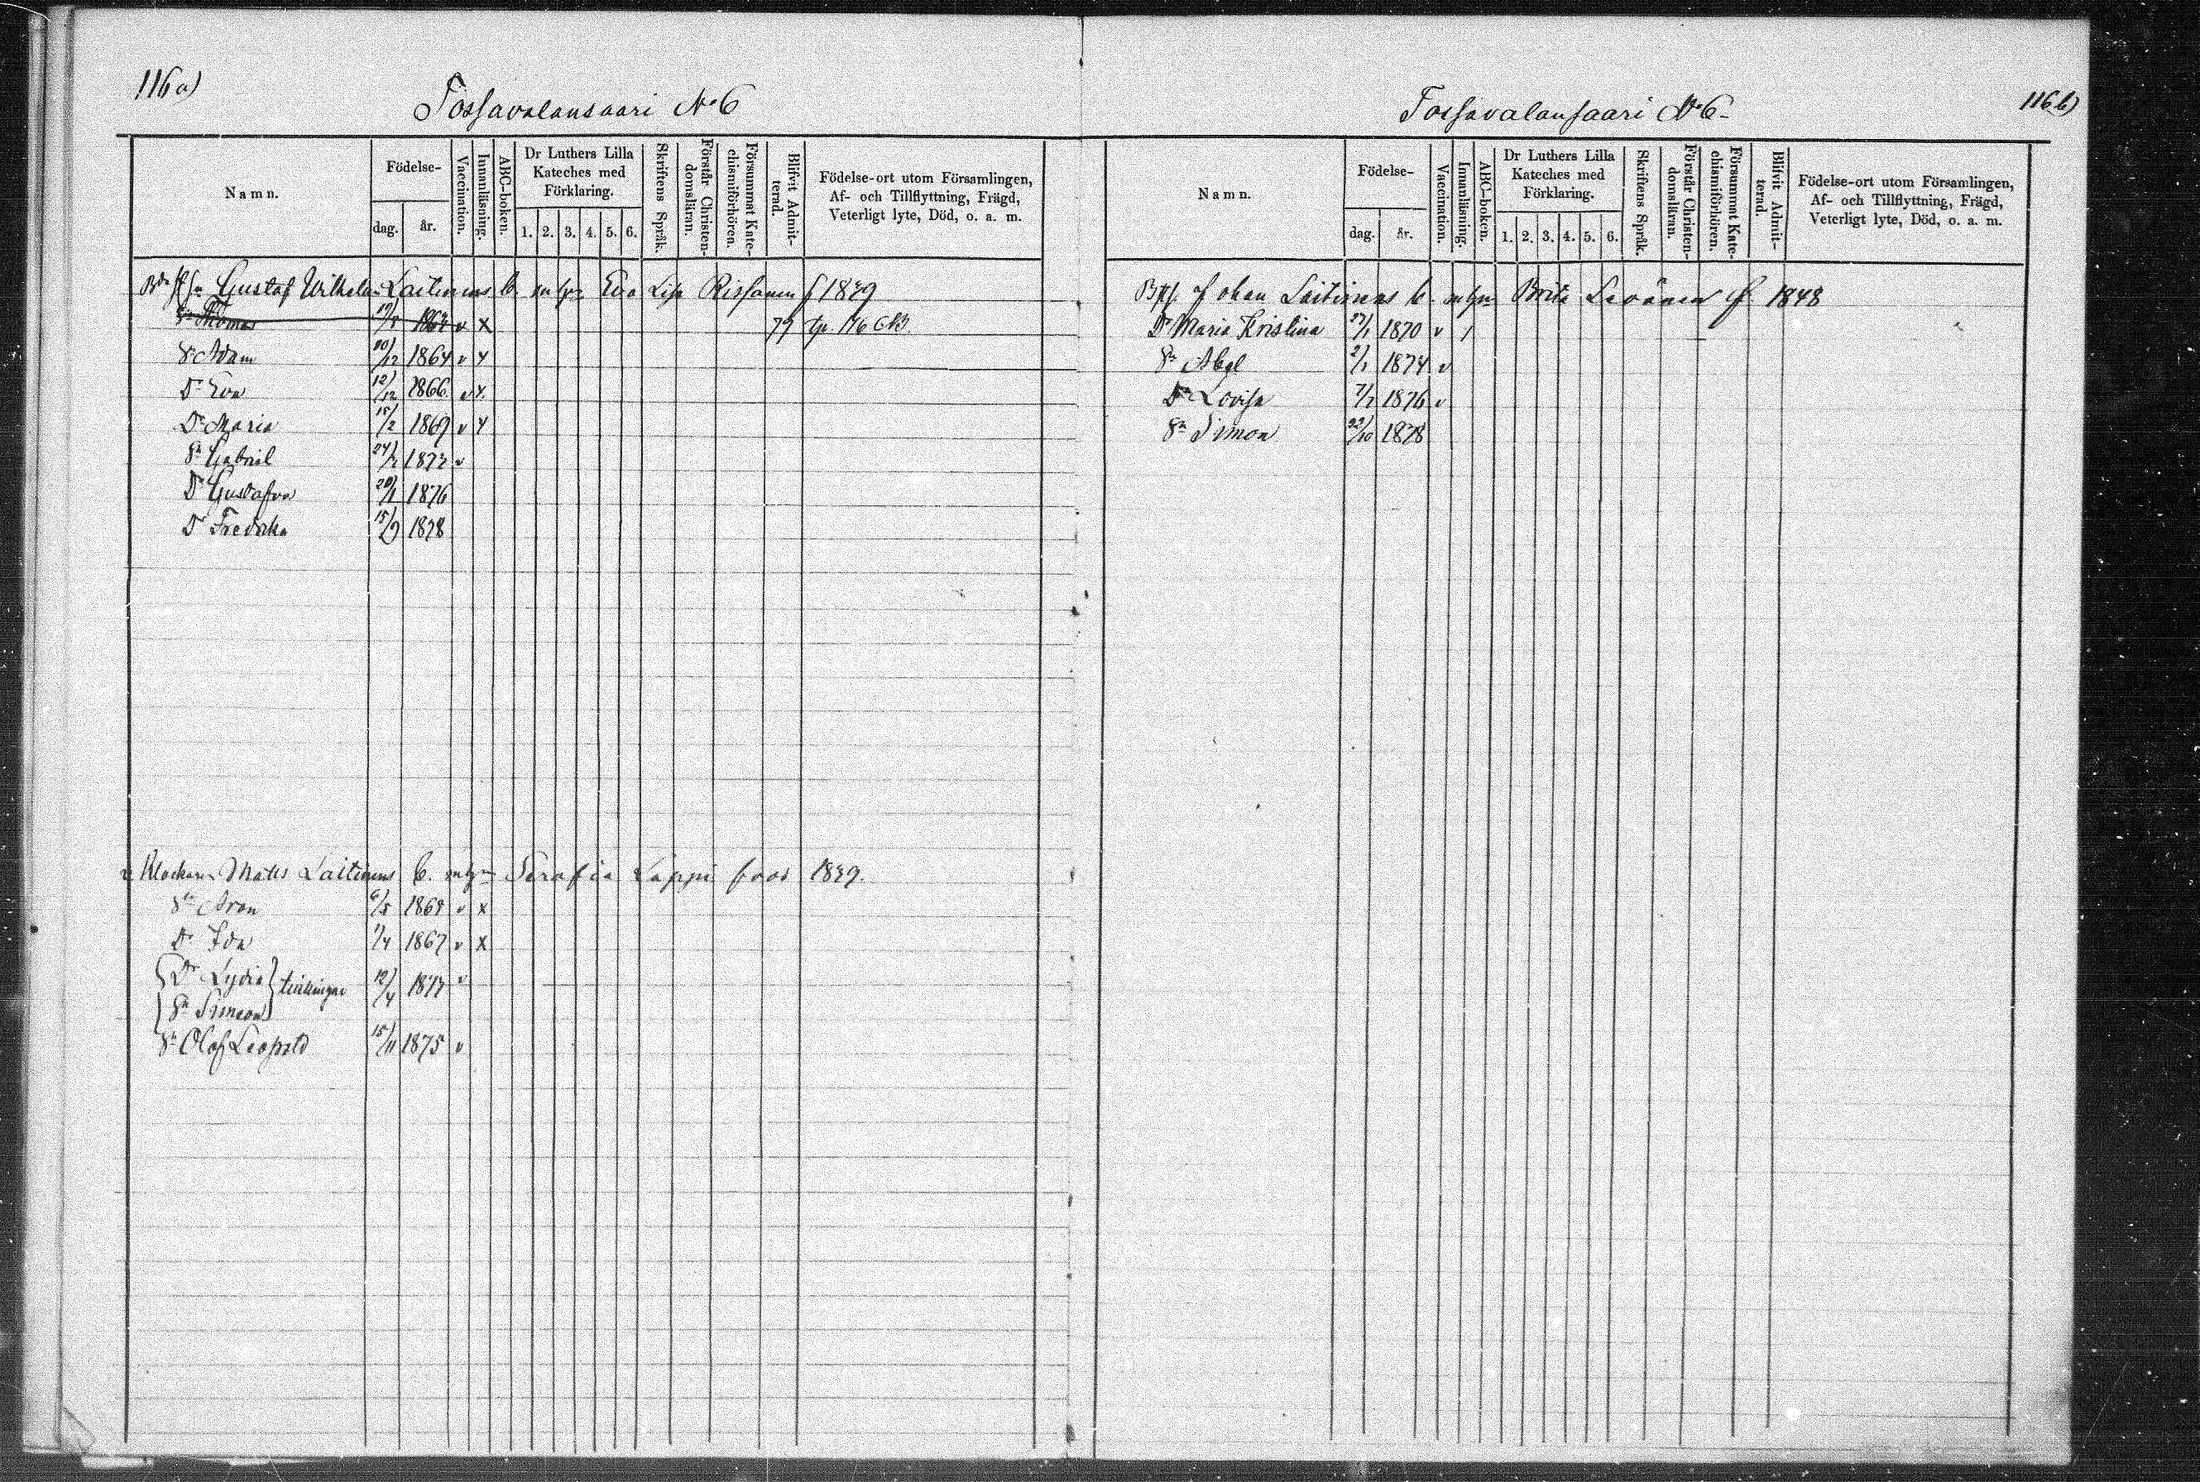 116 a)
Tossavalansaari No 6
Namn.
Födelse-
dag.
år.
Vaccination.
Innanläsning.
ABC-boken.
Dr Luthers Lilla Kateches med Förklaring.
1. 2. 3. 4. 5. 6.
Skriftens Språk.
Förstår Christendomsläran.
Försummat Katechismiförhören.
Blifvit Admitterad.
Födelse-ort utom Församlingen, Af- och Tillflyttning, Frägd, Veterligt lyte, Död, o. a. m.
Gustaf Wilhelm Laitinens b. m hn Eva Lisa Rissanen f 1839
Sn Thomas 1862 v x 79
Sn Adam 10/12 1864 v x
Dr Eva 12/12 1866 v x
Dr Maria 15/2 1869 v x
Sn Gabriel 24/2 1872 v
Dr Gustafva 20/1 1876
Dr Fredrika 15/9 1878
Klockaren Matts Laitinens b. m hn Serafia Lappi född 1839.
Sn Aron 6/5 1864 v x
Dr Ida 1/4 1867 v x
Dr Lydia } tvillingar 12/4 1872 v
Sn Simeon
Sn Olof Leopold 15/11 1875 v
116 b)
Tossavalansaari No 6
Namn.
Födelse-
dag.
år.
Vaccination.
Innanläsning.
ABC-boken.
Dr Luthers Lilla Kateches med Förklaring.
1. 2. 3. 4. 5. 6.
Skriftens Språk.
Förstår Christendomsläran.
Försummat Katechismiförhören.
Blifvit Admitterad.
Födelse-ort utom Församlingen, Af- och Tillflyttning, Frägd, Veterligt lyte, Död, o. a. m.
Johan Laitinens b. m hn Brita Levänen f 1848
Dr Maria Kristina 27/1 1870 v /
Sn Abel 2/1 1874 v
Dr Lovisa 7/2 1876 v
Sn Simon 22/10 1878